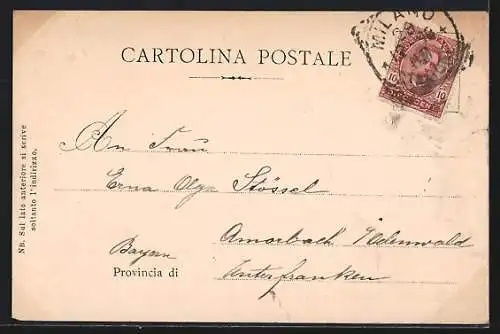 MILANO
CARTOLINA POSTALE
10 10
An Frau
Erna Olga Stössel
Amorbach Odenwald
Bayern
Provincia di Unterfranken
NB. Sul lato anteriore si scrive
soltanto l'indirizzo.